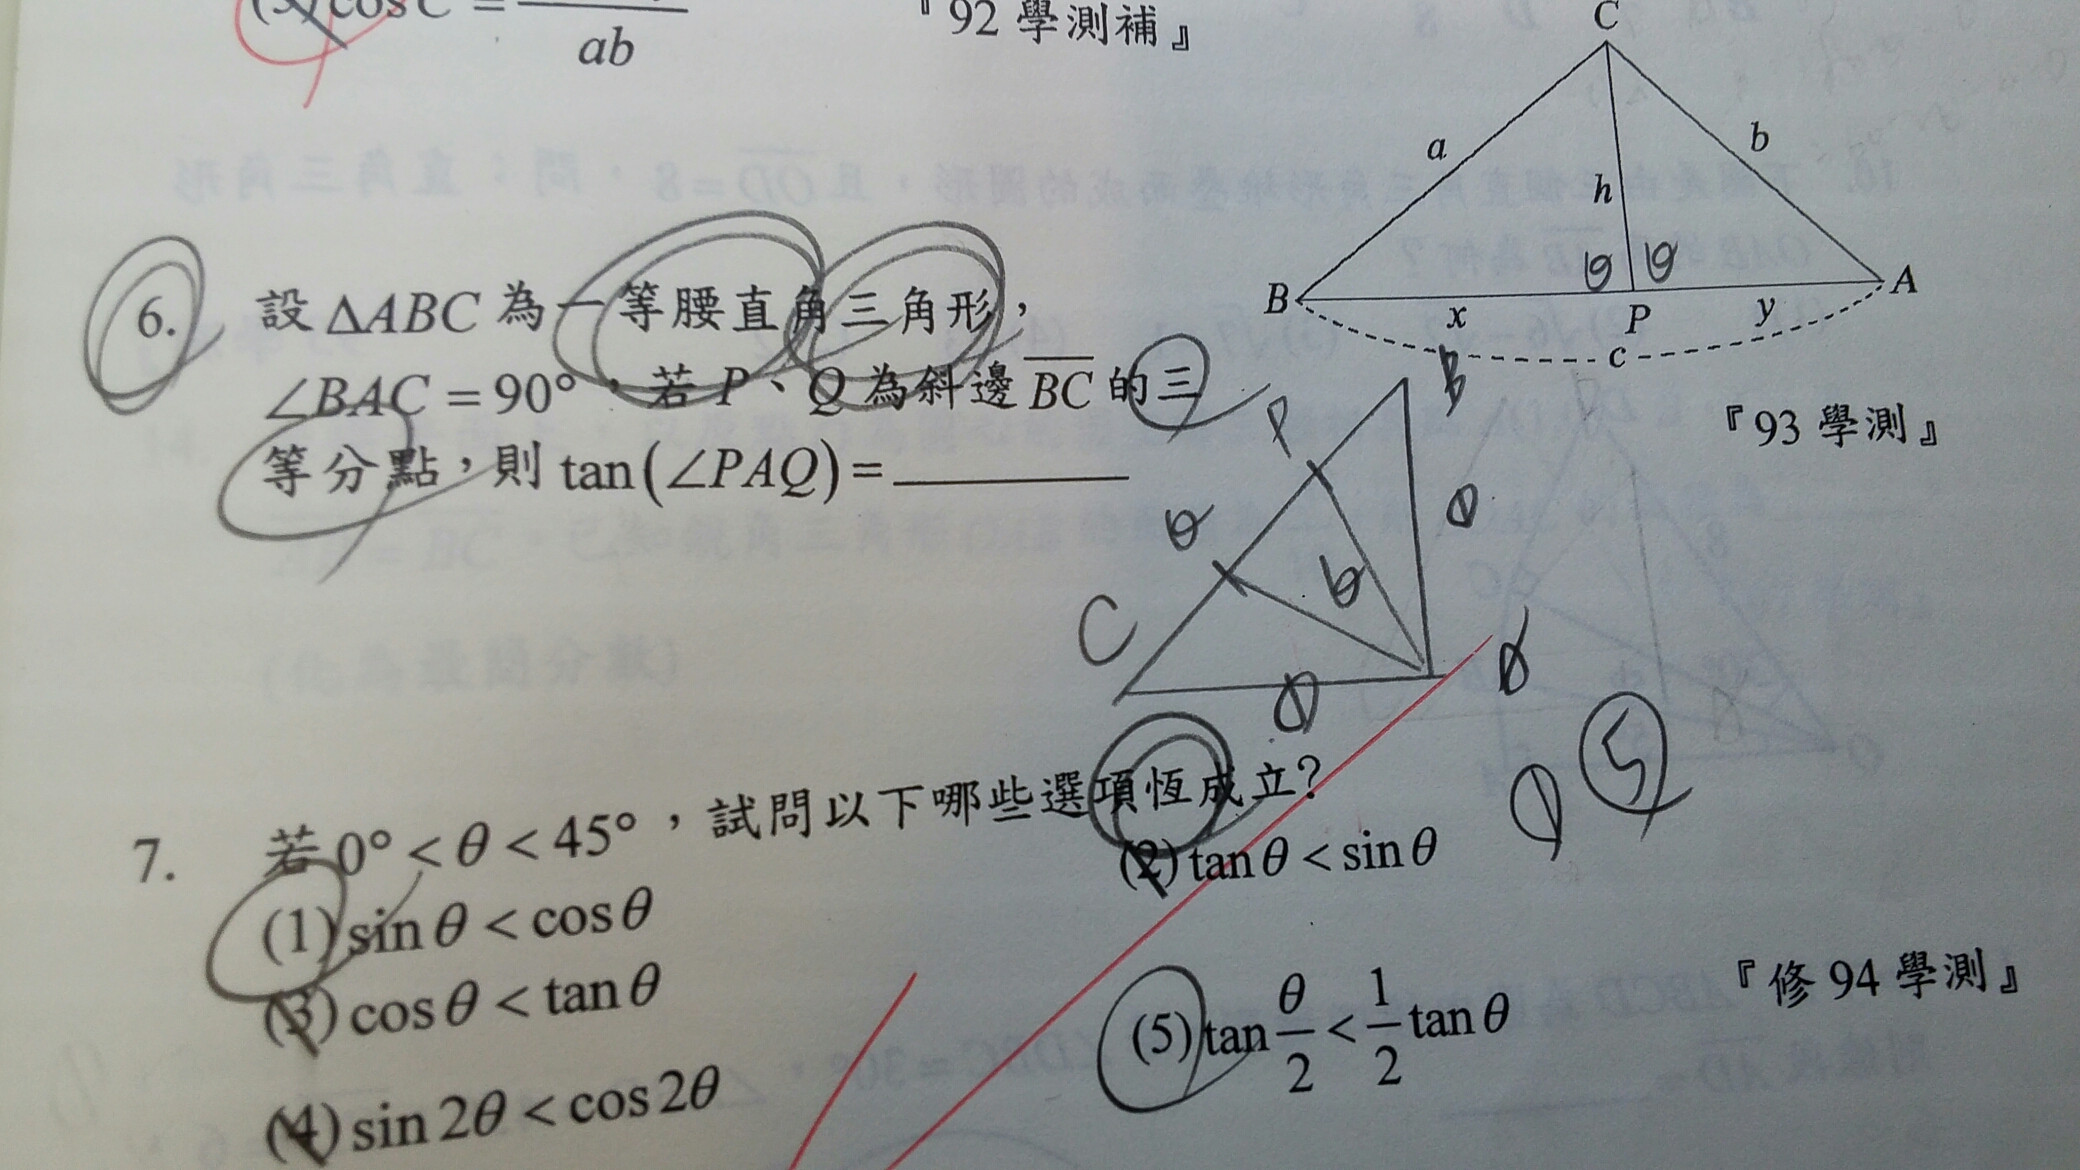 (3) cos C =
ab
『92 學測補』
C
a
b
h
θ θ
B
A
x
P
y
c
6. 設 ΔABC 為一等腰直角三角形，
∠BAC = 90°，若 P、Q 為斜邊 BC 的三
等分點，則 tan(∠PAQ) = ________
『93 學測』
B
P
θ
C
7. 若 0° < θ < 45°，試問以下哪些選項恆成立？
(1) sin θ < cos θ
(2) tan θ < sin θ
(3) cos θ < tan θ
(4) sin 2θ < cos 2θ
(5) tan θ/2 < 1/2 tan θ
『修 94 學測』
5